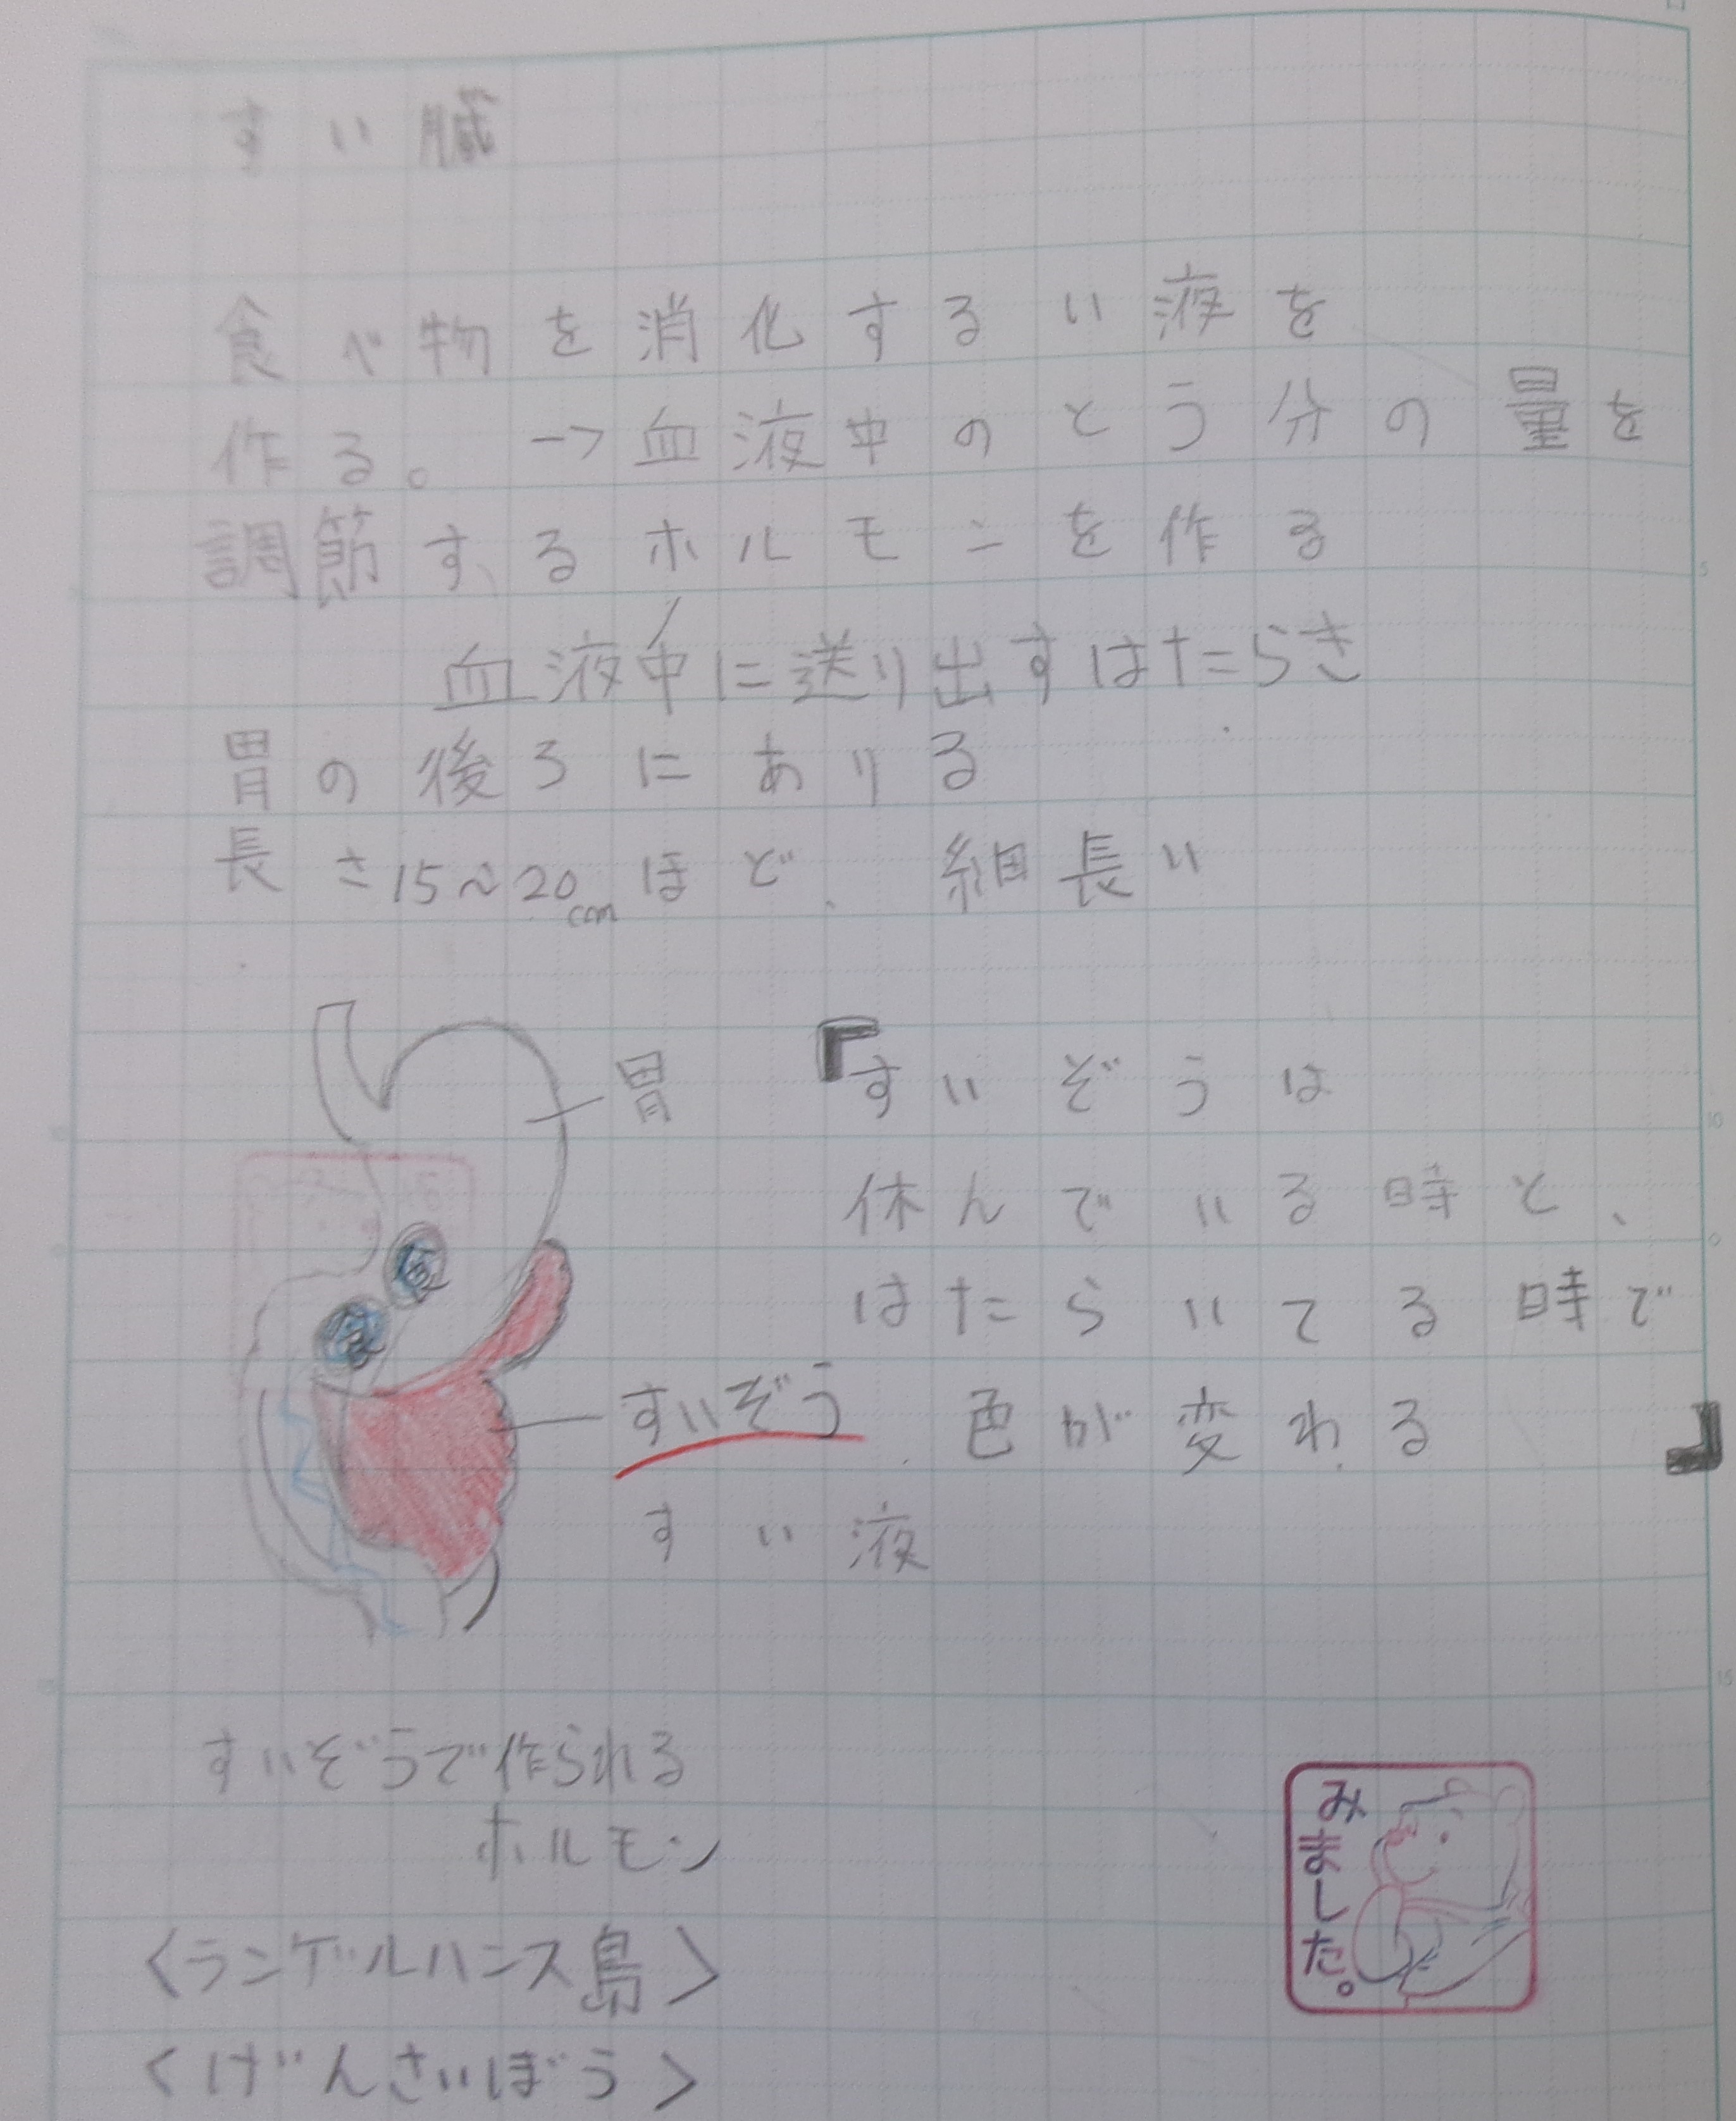 すい臓
食べ物を消化するい液を
作る。→血液中のとう分の量を
調節するホルモンを作る
血液中に送り出すはたらき
胃の後ろにありる
長さ15～20cmほど、細長い
胃
『すいぞうは
休んでいる時と、
はたらいてる時で
色が変わる』
食
食
すいぞう
すい液
すいぞうで作られる
ホルモン
〈ランゲルハンス島〉
〈げんさいぼう〉
みました。